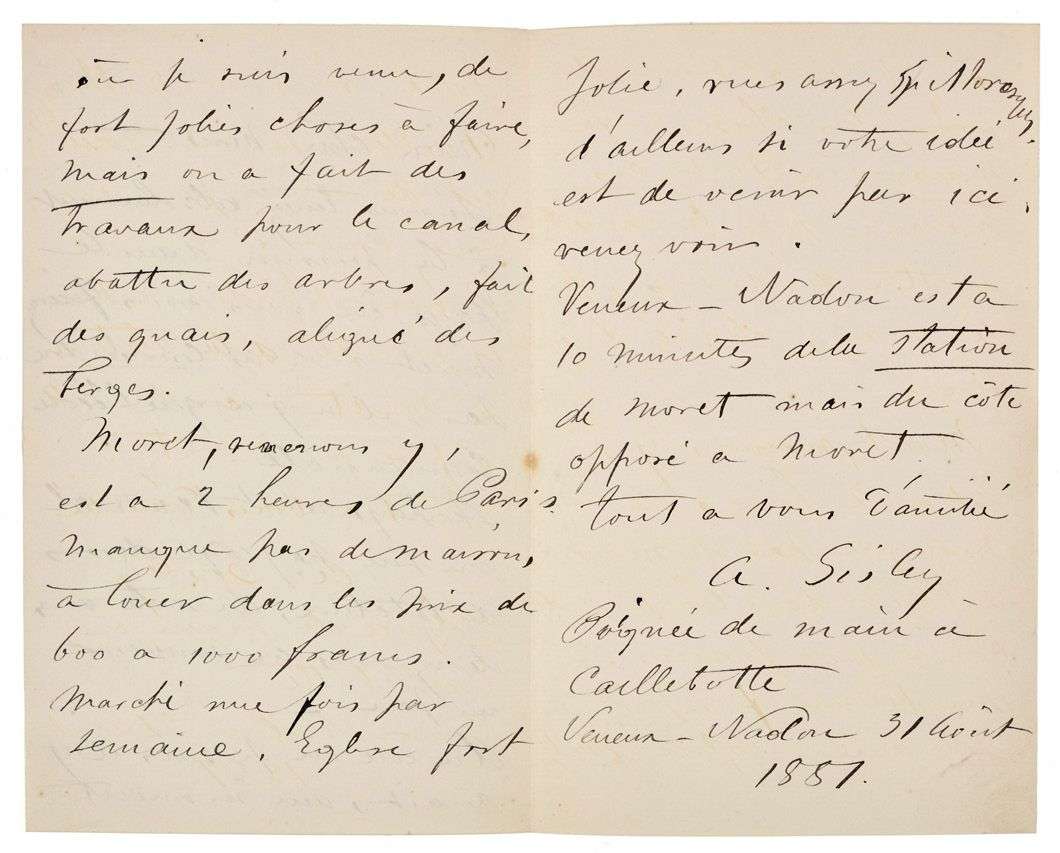 où je suis venu, de
fort jolies choses à faire,
mais on a fait des
travaux pour le canal,
abattu des arbres, fait
des quais, aligné des
berges.
Moret, revenons y,
est a 2 heures de Paris.
manque pas de maisons,
a louer dans les prix de
600 a 1000 francs.
marché une fois par
semaine. Eglise fort
Jolie, vues assez pittoresques.
d'ailleurs si votre idée
est de venir par ici,
venez voir.
Veneux-Nadon est a
10 minutes de la station
de moret mais du côte
opposé a Moret.
tout a vous d'amitié
A. Sisley
Poignée de main à
Caillebotte
Veneux-Nadon 31 Août
1881.